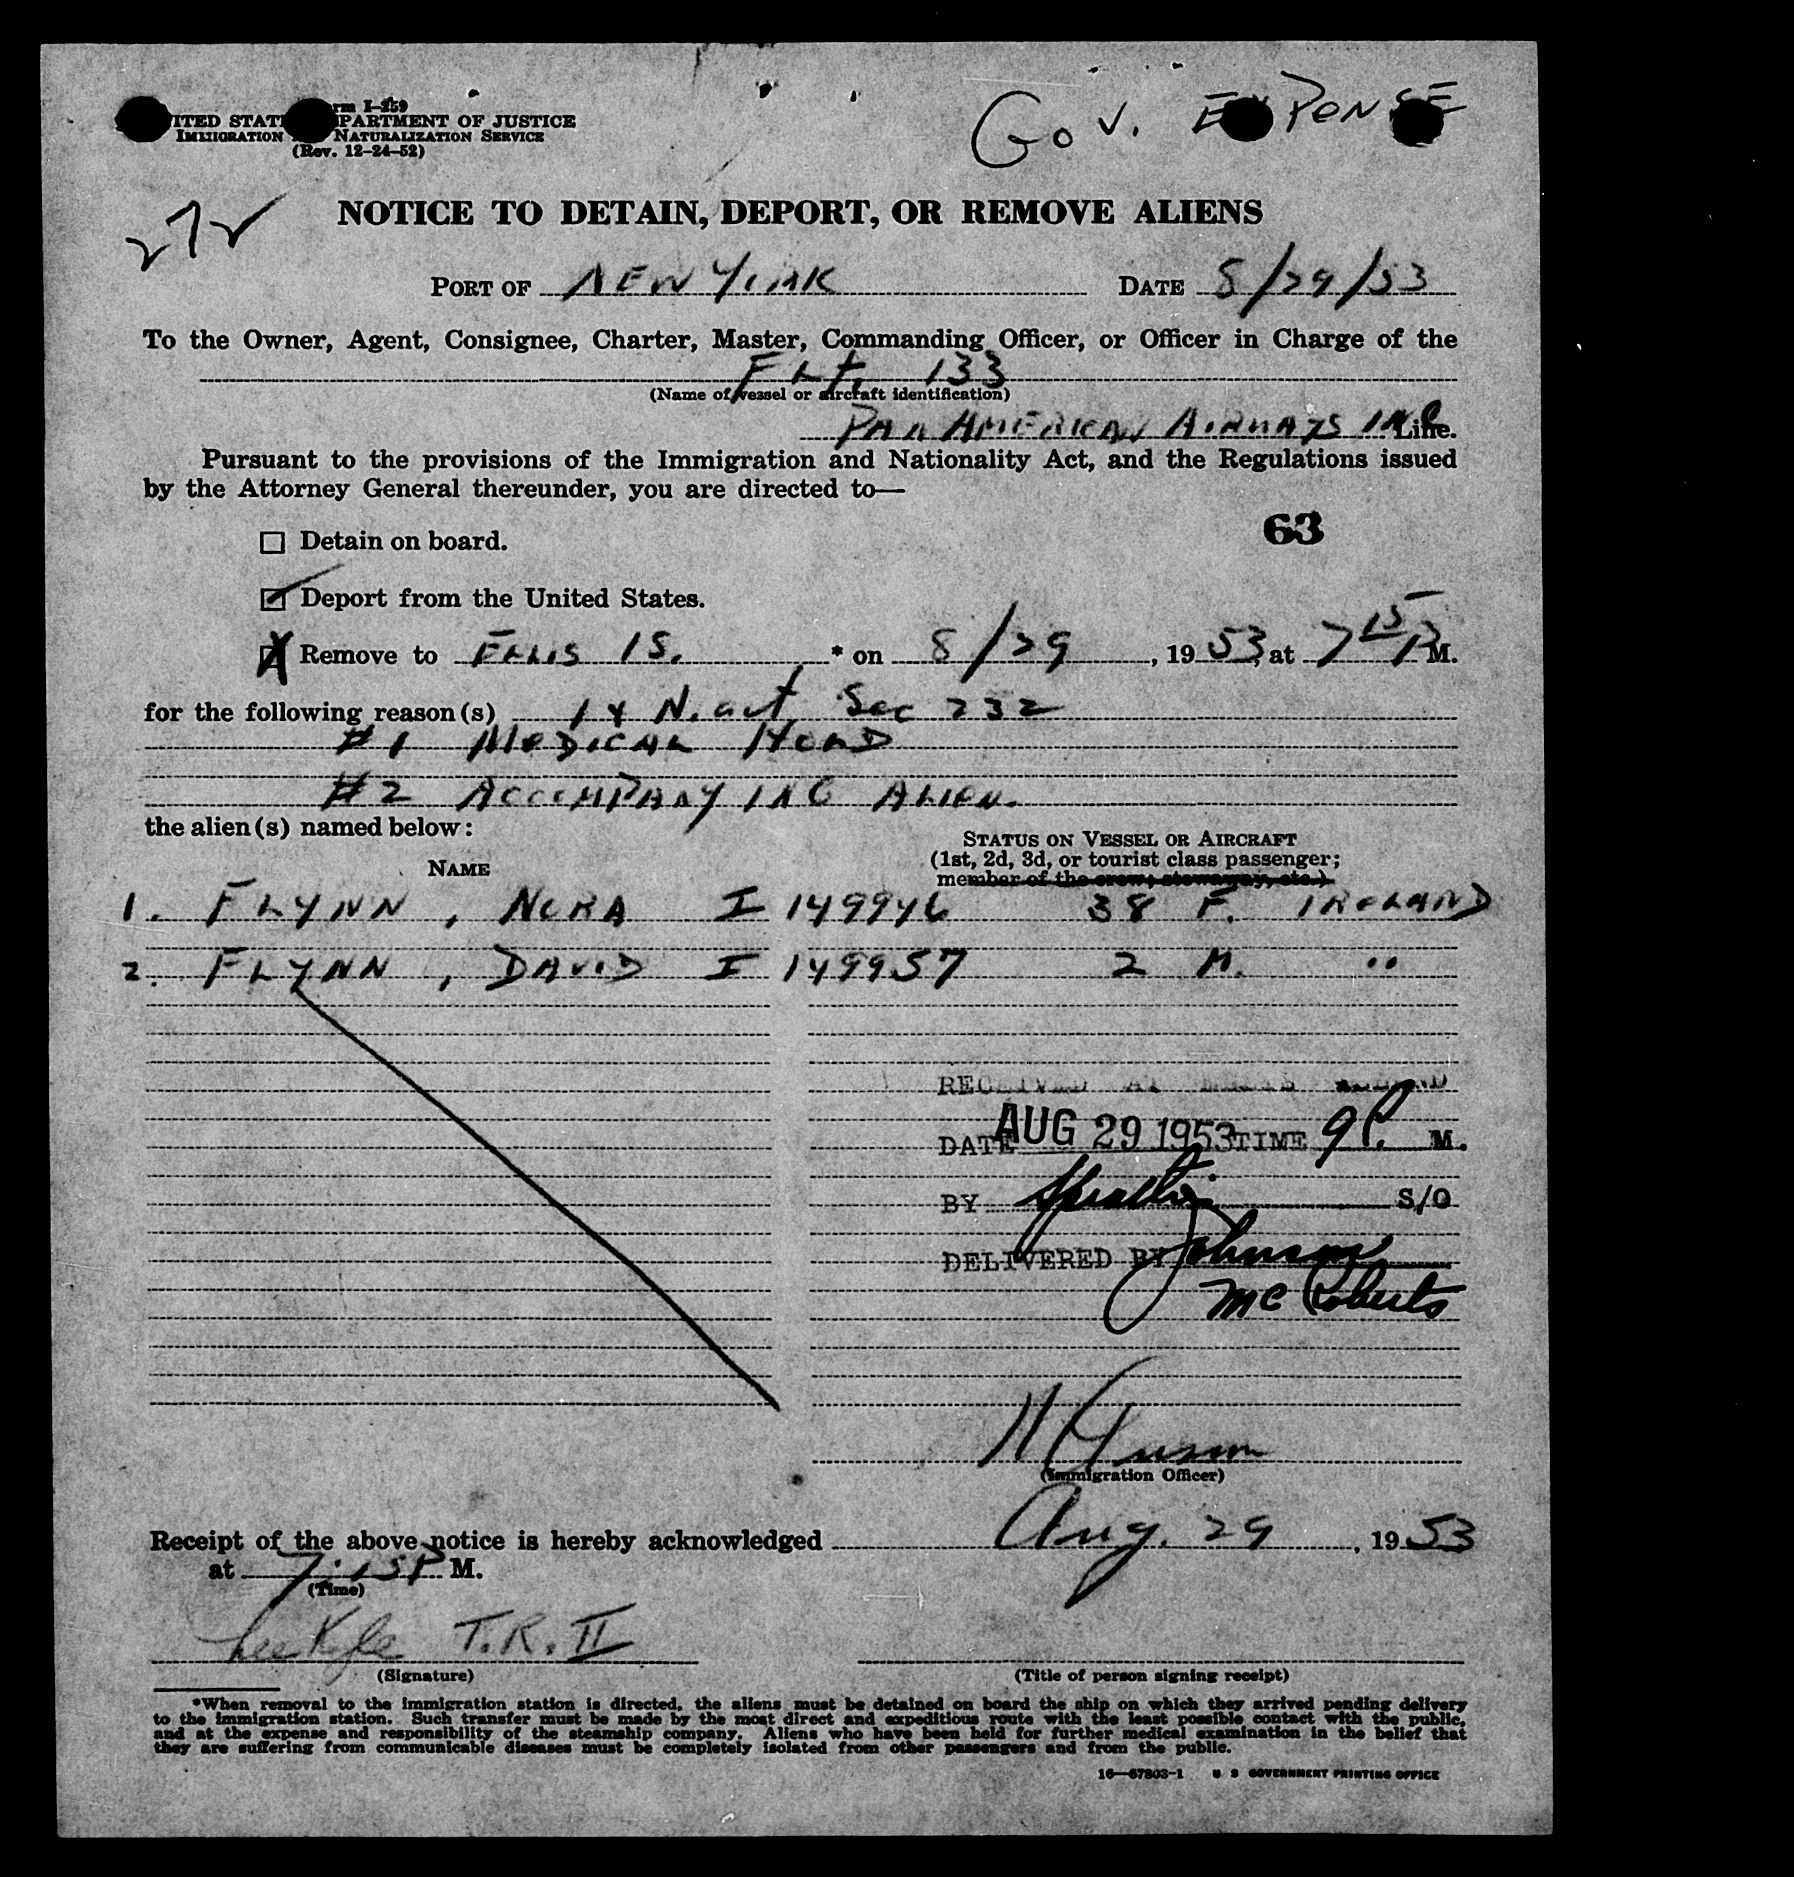 Gov. EXPENSE
Form I-259
UNITED STATES DEPARTMENT OF JUSTICE
IMMIGRATION NATURALIZATION SERVICE
(Rev. 12-24-52)
NOTICE TO DETAIN, DEPORT, OR REMOVE ALIENS
PORT OF NEW YORK DATE 8/29/53
To the Owner, Agent, Consignee, Charter, Master, Commanding Officer, or Officer in Charge of the
FLt. 133
(Name of vessel or aircraft identification)
PAN AMERICAN AIRWAYS INC Line.
Pursuant to the provisions of the Immigration and Nationality Act, and the Regulations issued
by the Attorney General thereunder, you are directed to—
63
Detain on board.
Deport from the United States.
Remove to ELLIS IS. * on 8/29, 1953, at 7 15 P M.
for the following reason(s) I & N. act Sec 232
#1 MEDICAL HOLD
#2 ACCOMPANYING ALIEN.
the alien(s) named below:
STATUS ON VESSEL OR AIRCRAFT
(1st, 2d, 3d, or tourist class passenger;
member of the crew; stowaway, etc.)
NAME
1. FLYNN, NORA I 149946 38 F. IRELAND
2. FLYNN, DAVID I 149957 2 M. "
RECEIVED AT ELLIS ISLAND
DATE AUG 29 1953 TIME 9 P. M.
BY S/O
DELIVERED BY Johnson
McRoberts
(Immigration Officer)
Receipt of the above notice is hereby acknowledged Aug. 29, 1953
at 7:15 P M.
(Time)
Lee Kyle T.R. II
(Signature) (Title of person signing receipt)
*When removal to the immigration station is directed, the aliens must be detained on board the ship on which they arrived pending delivery
to the immigration station. Such transfer must be made by the most direct and expeditious route with the least possible contact with the public,
and at the expense and responsibility of the steamship company. Aliens who have been held for further medical examination in the belief that
they are suffering from communicable diseases must be completely isolated from other passengers and from the public.
16—67803-1 U S GOVERNMENT PRINTING OFFICE